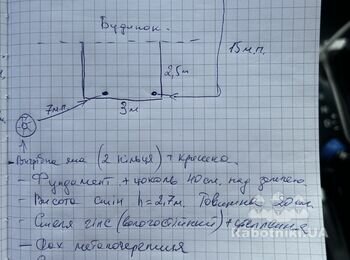 Будинок.
15 м.п.
2,5м
7м.п.
3м
- Вигрібна яма (2 кільця) + кришка.
- Фундамент + цоколь 40см. над землею
- Висота стін h=2,7м. Товщина 20см.
- Стеля гіпс (вологостійкий) + утеплення
- Дах металочерепиця
kabanchik.ua